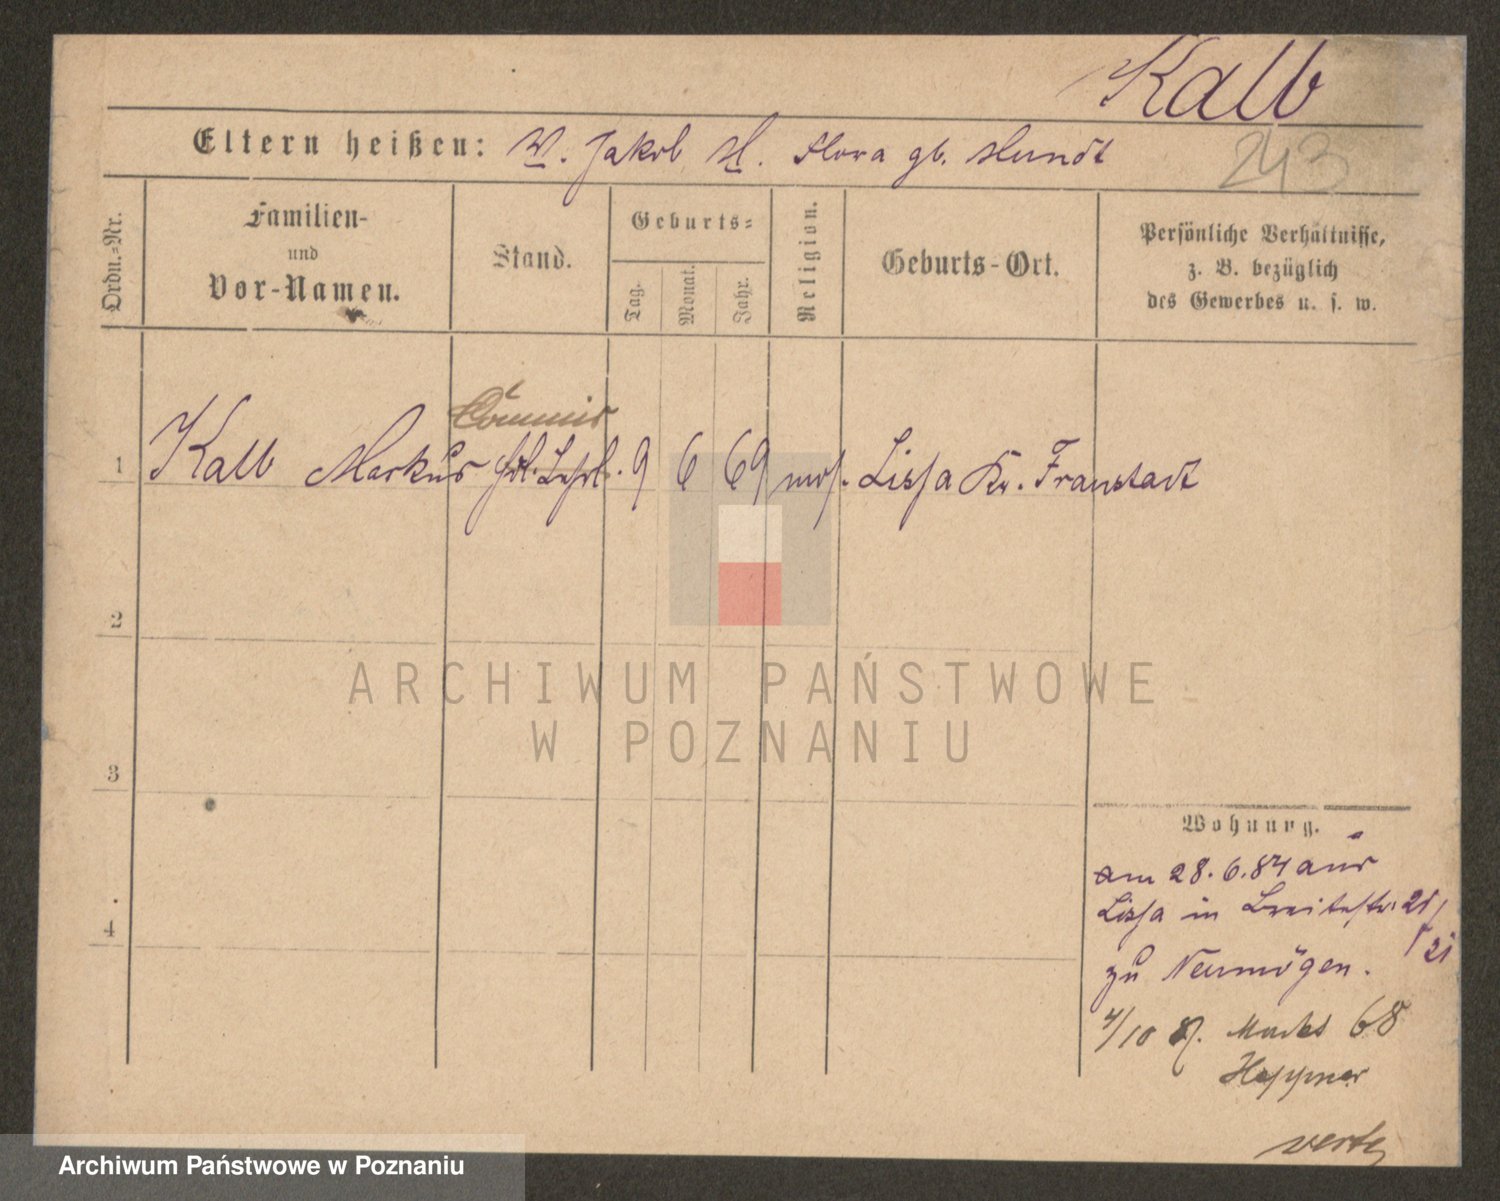 Kalb
243
Eltern heißen: V. Jakob M. Flora gb. Mundt
Ordn.-Nr.
Familien-
und
Vor-Namen.
Stand.
Geburts-
Tag.
Monat.
Jahr.
Religion.
Geburts-Ort.
Persönliche Verhältnisse,
z. B. bezüglich
des Gewerbes u. s. w.
Commis
1 Kalb Markus Hdl. Lehrl. 9 6 69 mos. Lissa Kr. Fraustadt
2
3
4
ARCHIWUM PAŃSTWOWE
W POZNANIU
Wohnung.
am 28. 6. 84 aus
Lissa in Breitestr. 21
21
zu Neumögen.
4/10 87. Markt 68
Heppner
verte
Archiwum Państwowe w Poznaniu